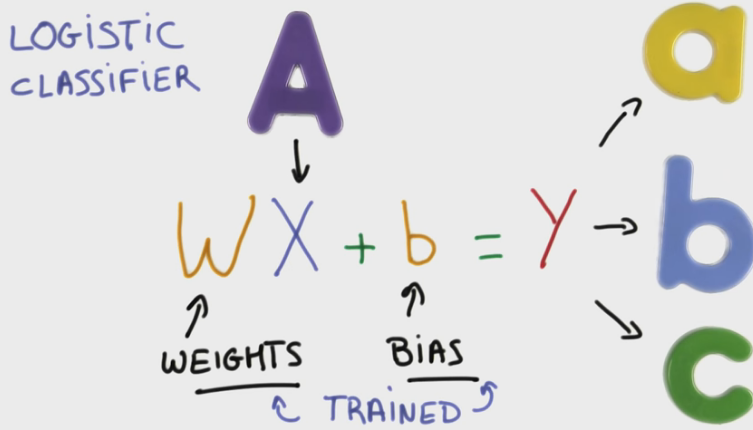 LOGISTIC
CLASSIFIER
A
WX + b = Y
WEIGHTS
BIAS
TRAINED
a
b
c